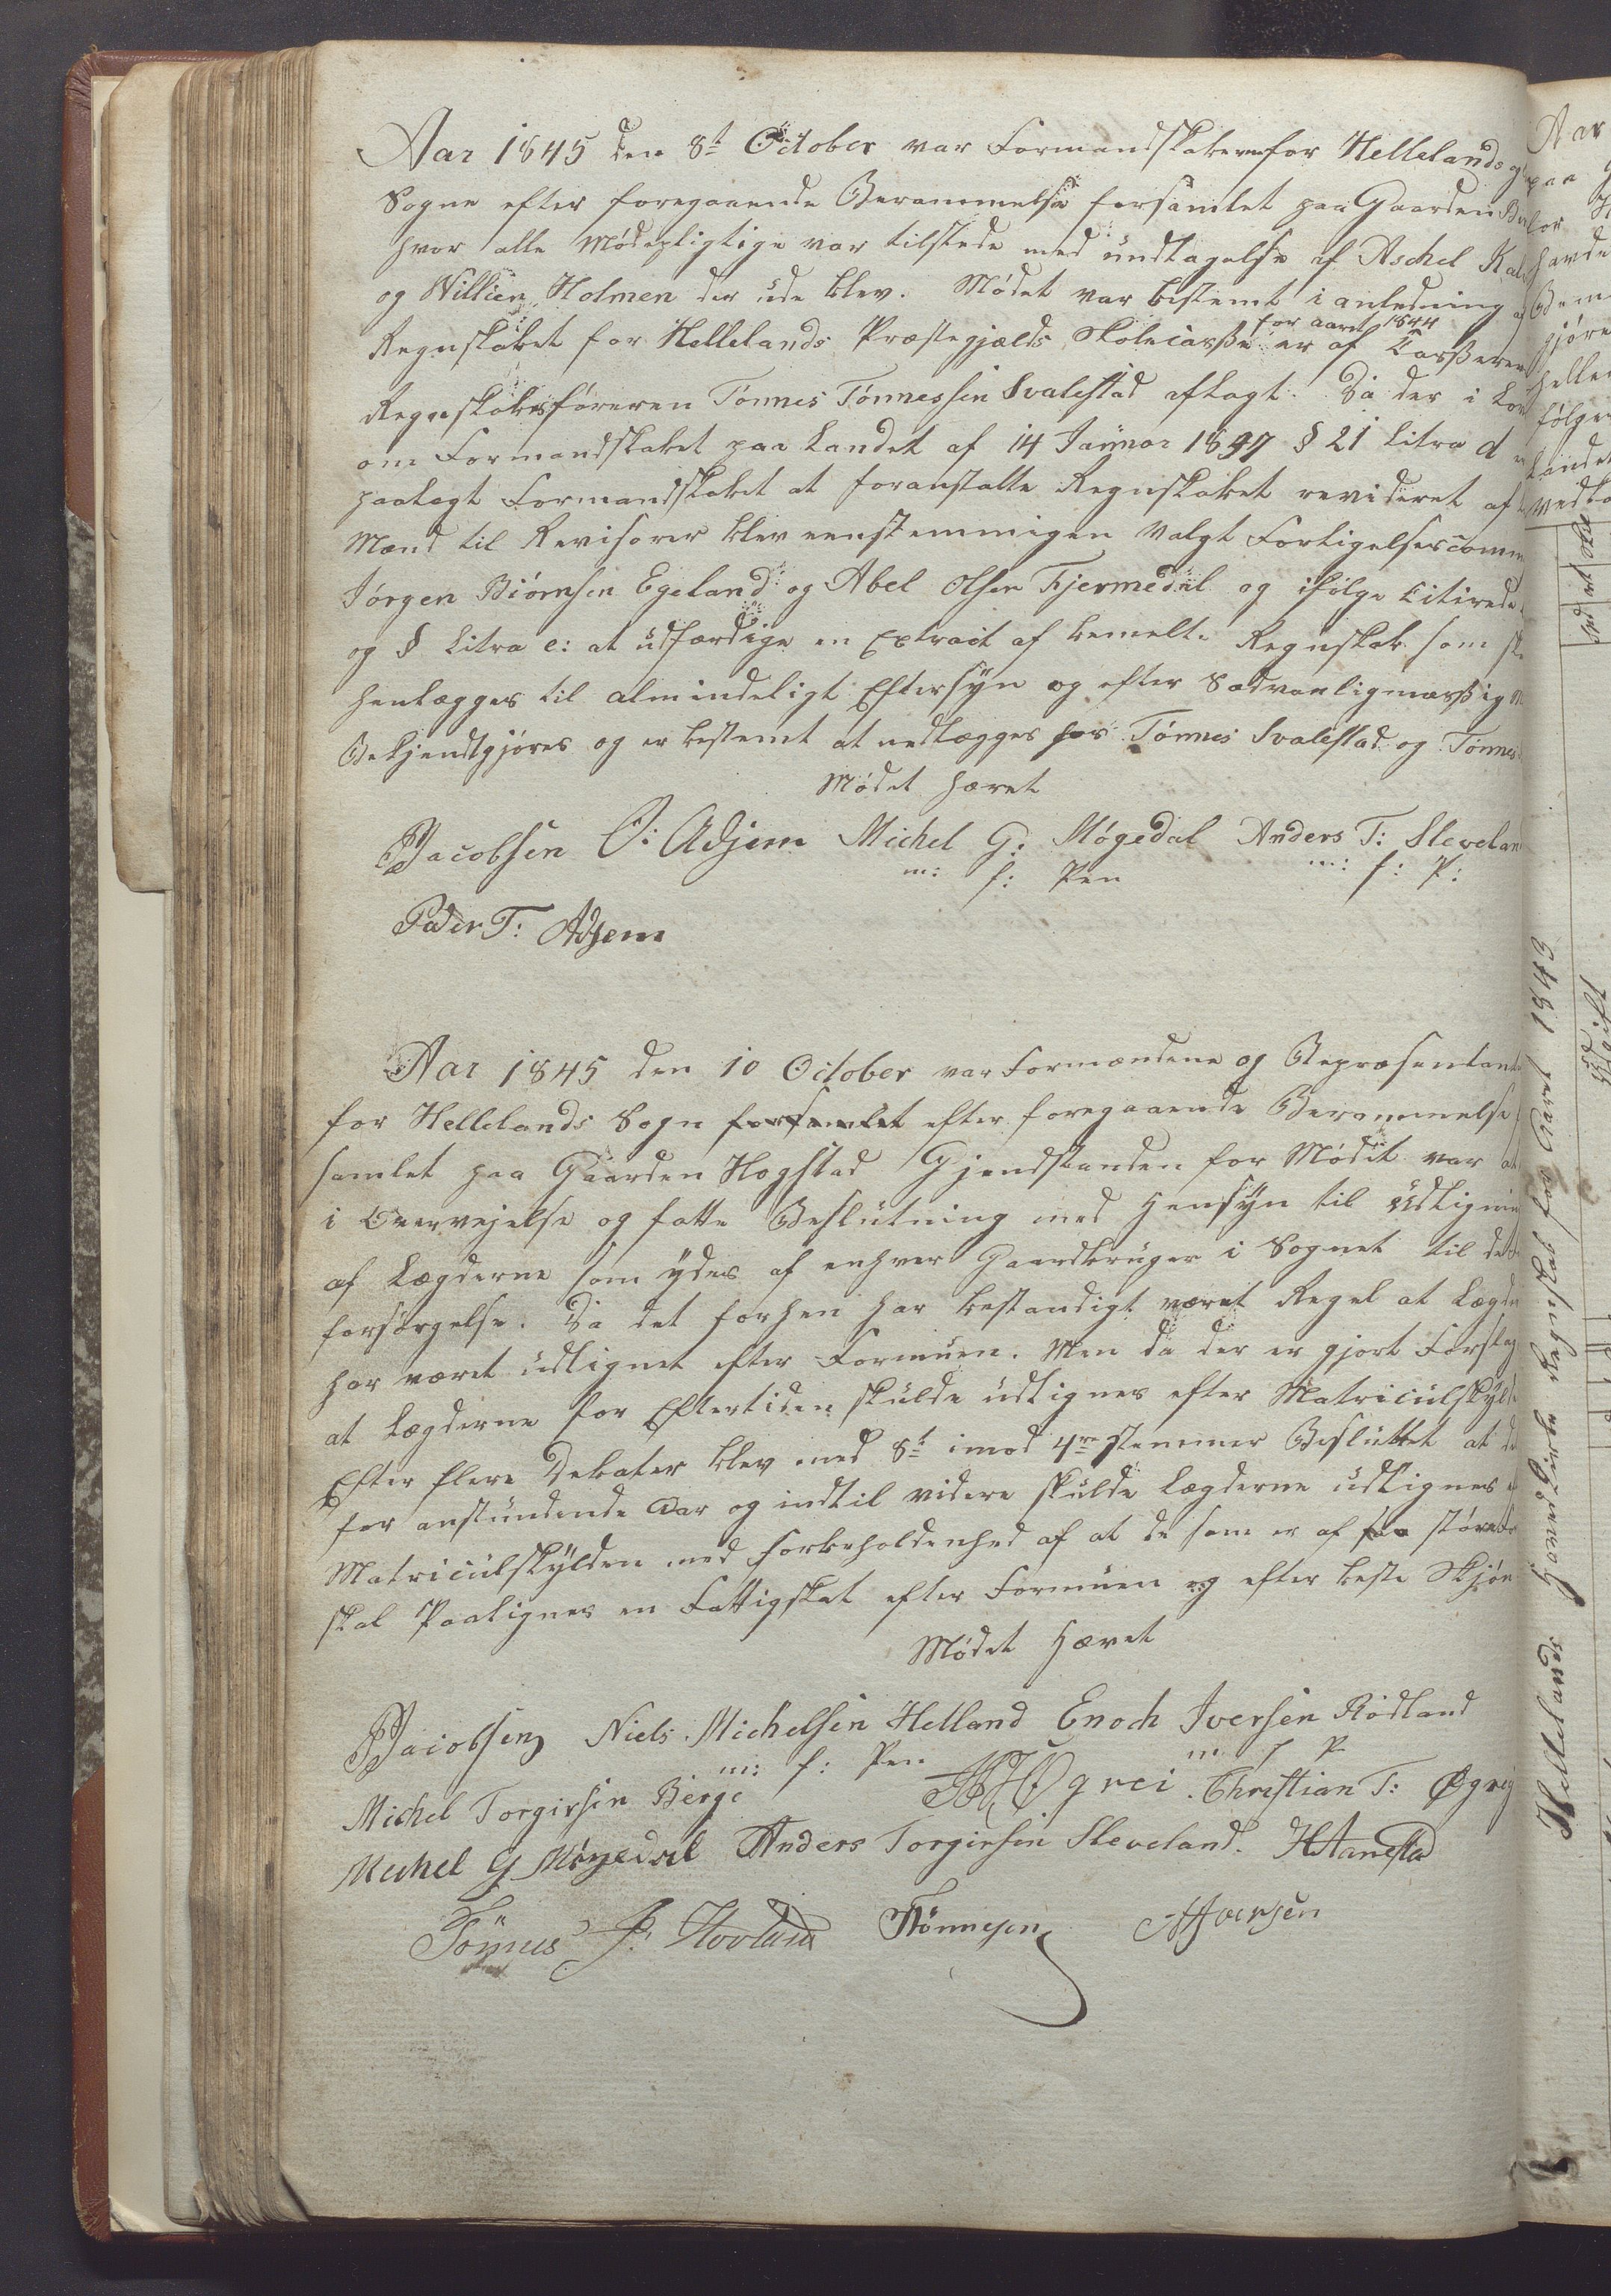 Aar 1845 den 8t October var Formandskaberne for Hellelands og
Sogne efter foregaaende Berammelse forsamlet paa Gaarden
hvor alle Mødepligtige var tilstede med undtagelse af Aschel
og Willien Holmen der ude blev. Mødet var bestemt i anledning af
Regnskabet for Hellelands Præstegjælds Skolecasse for aaret 1844 er af Casseren
Regnskabsføreren Tønnes Tønnessen Svalestad aflagt. Da der i Lov
om Formandskabet paa Landet af 14 Januar 1837 § 21 Litra d
paalagt Formandskabet at foranstalte Regnskabet revideret af
Mænd til Revisorer blev eenstemmigen valgt Forligelsescomm
Jørgen Biørnsen Egeland og Abel Olsen Fjermedal og ifølge Citirede
og § Litra e: at udfærdige en Extract af bemelte Regnskab som
henlægges til almindeligt Eftersyn og efter Sædvanligmæssig
Bekjendtgjøres og er bestemt at nedlægges hos Tønnes Svalestad og Tønnes
Mødet hævet
PJacobsen O: Adjem Michel G: Møgedal Anders T: Sleveland
m: f: Pen m: f: P:
Peder T: Adjem
Aar 1845 den 10 October var Formændene og Repræsentante
for Hellelands Sogn forsamlet efter foregaaende Berammelse
samlet paa Gaarden Hogstad Gjendstanden for Mødet var at
i Overvejelse og fatte Beslutning med Hensyn til Udlignin
af Lægderne som ydes af enhver Gaardbruger i Sognet til
forsørgelse. Da det forhen har bestandigt været Regel at Lægde
har været udlignet efter Formuen. Men da der er gjort Forslag
at Lægderne for Eftertiden skulde udlignes efter Matriculskyld
Efter flere Debater blev med 8t imod 4re stemmer Besluttet at
for anstundende Aar og indtil videre skulde Lægderne udlignes
Matriculskylden med forbeholdenhed af at de som er af større
skal Paalignes en Fattigskat efter Formuen og efter beste Skjøn
Mødet Hævet
PJacobsen Niels Michelsen Helland Enoch Iversen Rødland
m: f: Pen m f P
Michel Torgirsen Berge Øgrei Christian T: Øgrey
Michel G Møgedal Anders Torgirsen Sleveland. HAanestad
Tønnes J: Hovland TTønnesen Iversen
Aar
paa
for
havde
gjøre
følge
Landet
Hellelands Hovedkirke Regnskab for Aaret 1843
Udgift